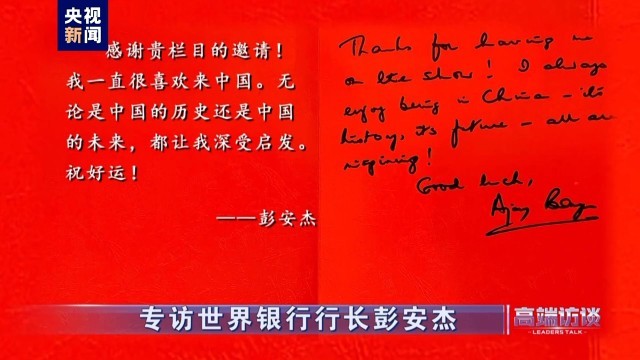 央视
新闻
感谢贵栏目的邀请！
我一直很喜欢来中国。无
论是中国的历史还是中国
的未来，都让我深受启发。
祝好运！
——彭安杰
Thanks for having me
on the show! I always
enjoy being in China – its
history, its future – all are
inspiring!
Good luck,
Ajay Banga
专访世界银行行长彭安杰
高端访谈
LEADERS TALK